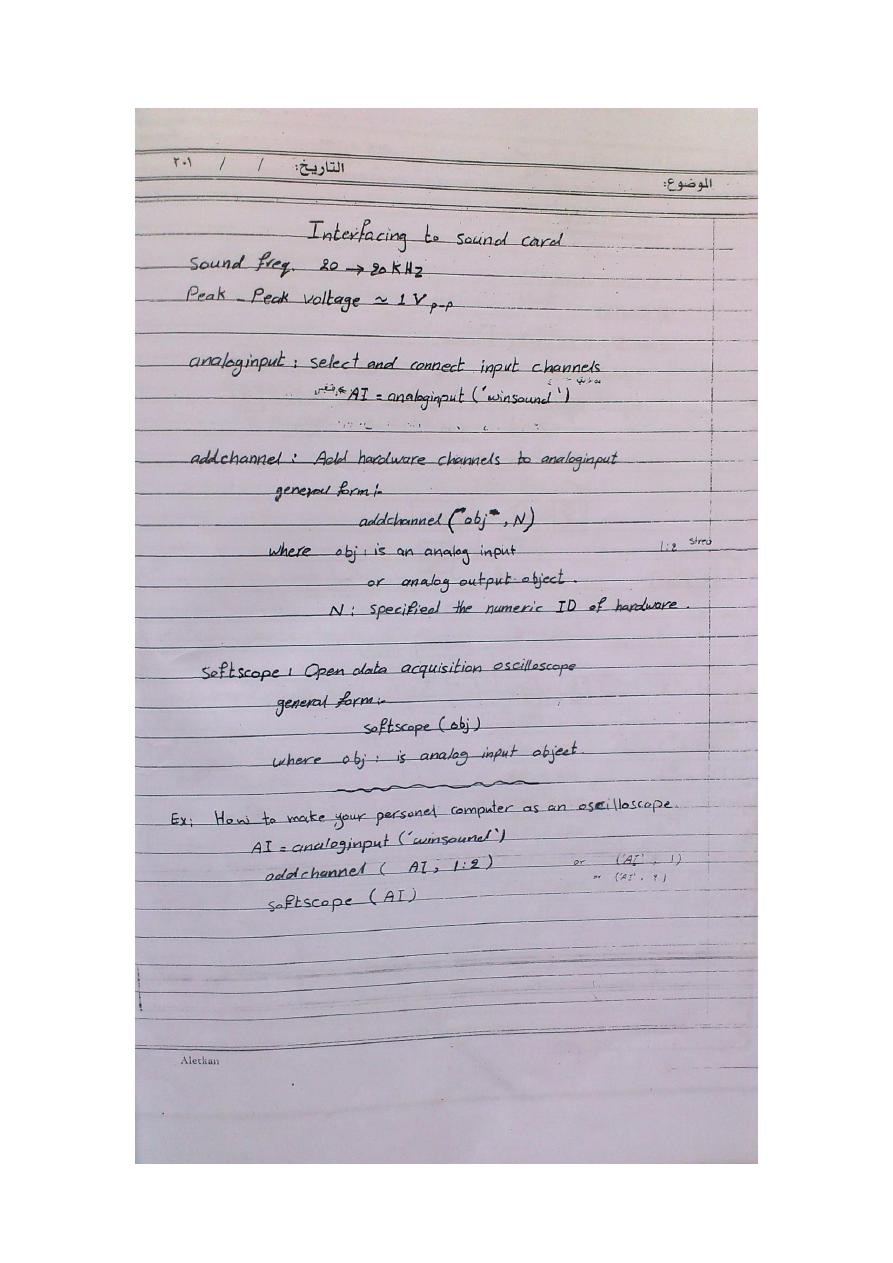 التاريخ: / / ٢٠١
الموضوع:
Interfacing to sound card
Sound freq. 20 → 20 KHz
Peak - Peak voltage ~ 1 V p-p
analoginput : select and connect input channels
AI = analoginput ('winsound')
addchannel : Add hardware channels to analoginput
general form:-
addchannel ("obj", N)
where obj : is an analog input 1:2
or analog output object .
N : specified the numeric ID of hardware .
Softscope : Open data acquisition oscilloscope
general form:-
softscope (obj)
where obj : is analog input object
Ex: How to make your personel computer as an oscilloscope.
AI = analoginput ('winsound')
addchannel ( AI, 1:2 ) or ('AI' , 1)
or ('AI' , 2)
softscope (AI)
Aletkan